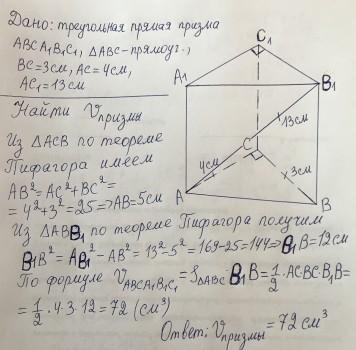 Дано: треугольная прямая призма
ABCA₁B₁C₁, ΔABC-прямоуг.,
BC=3см, AC=4см,
AC₁=13см
Найти Vпризмы
Из ΔACB по теореме
Пифагора имеем
AB²=AC²+BC²=
=4²+3²=25=>AB=5см
Из ΔABB₁ по теореме Пифагора получим
B₁B²=AB₁²-AB²=13²-5²=169-25=144=>B₁B=12см
По формуле VABCA₁B₁C₁=SΔABC·B₁B=1/2·AC·BC·B₁B=
=1/2·4·3·12=72 (см³)
Ответ: Vпризмы=72см³
C₁
A₁
B₁
13см
C
4см
3см
A
B